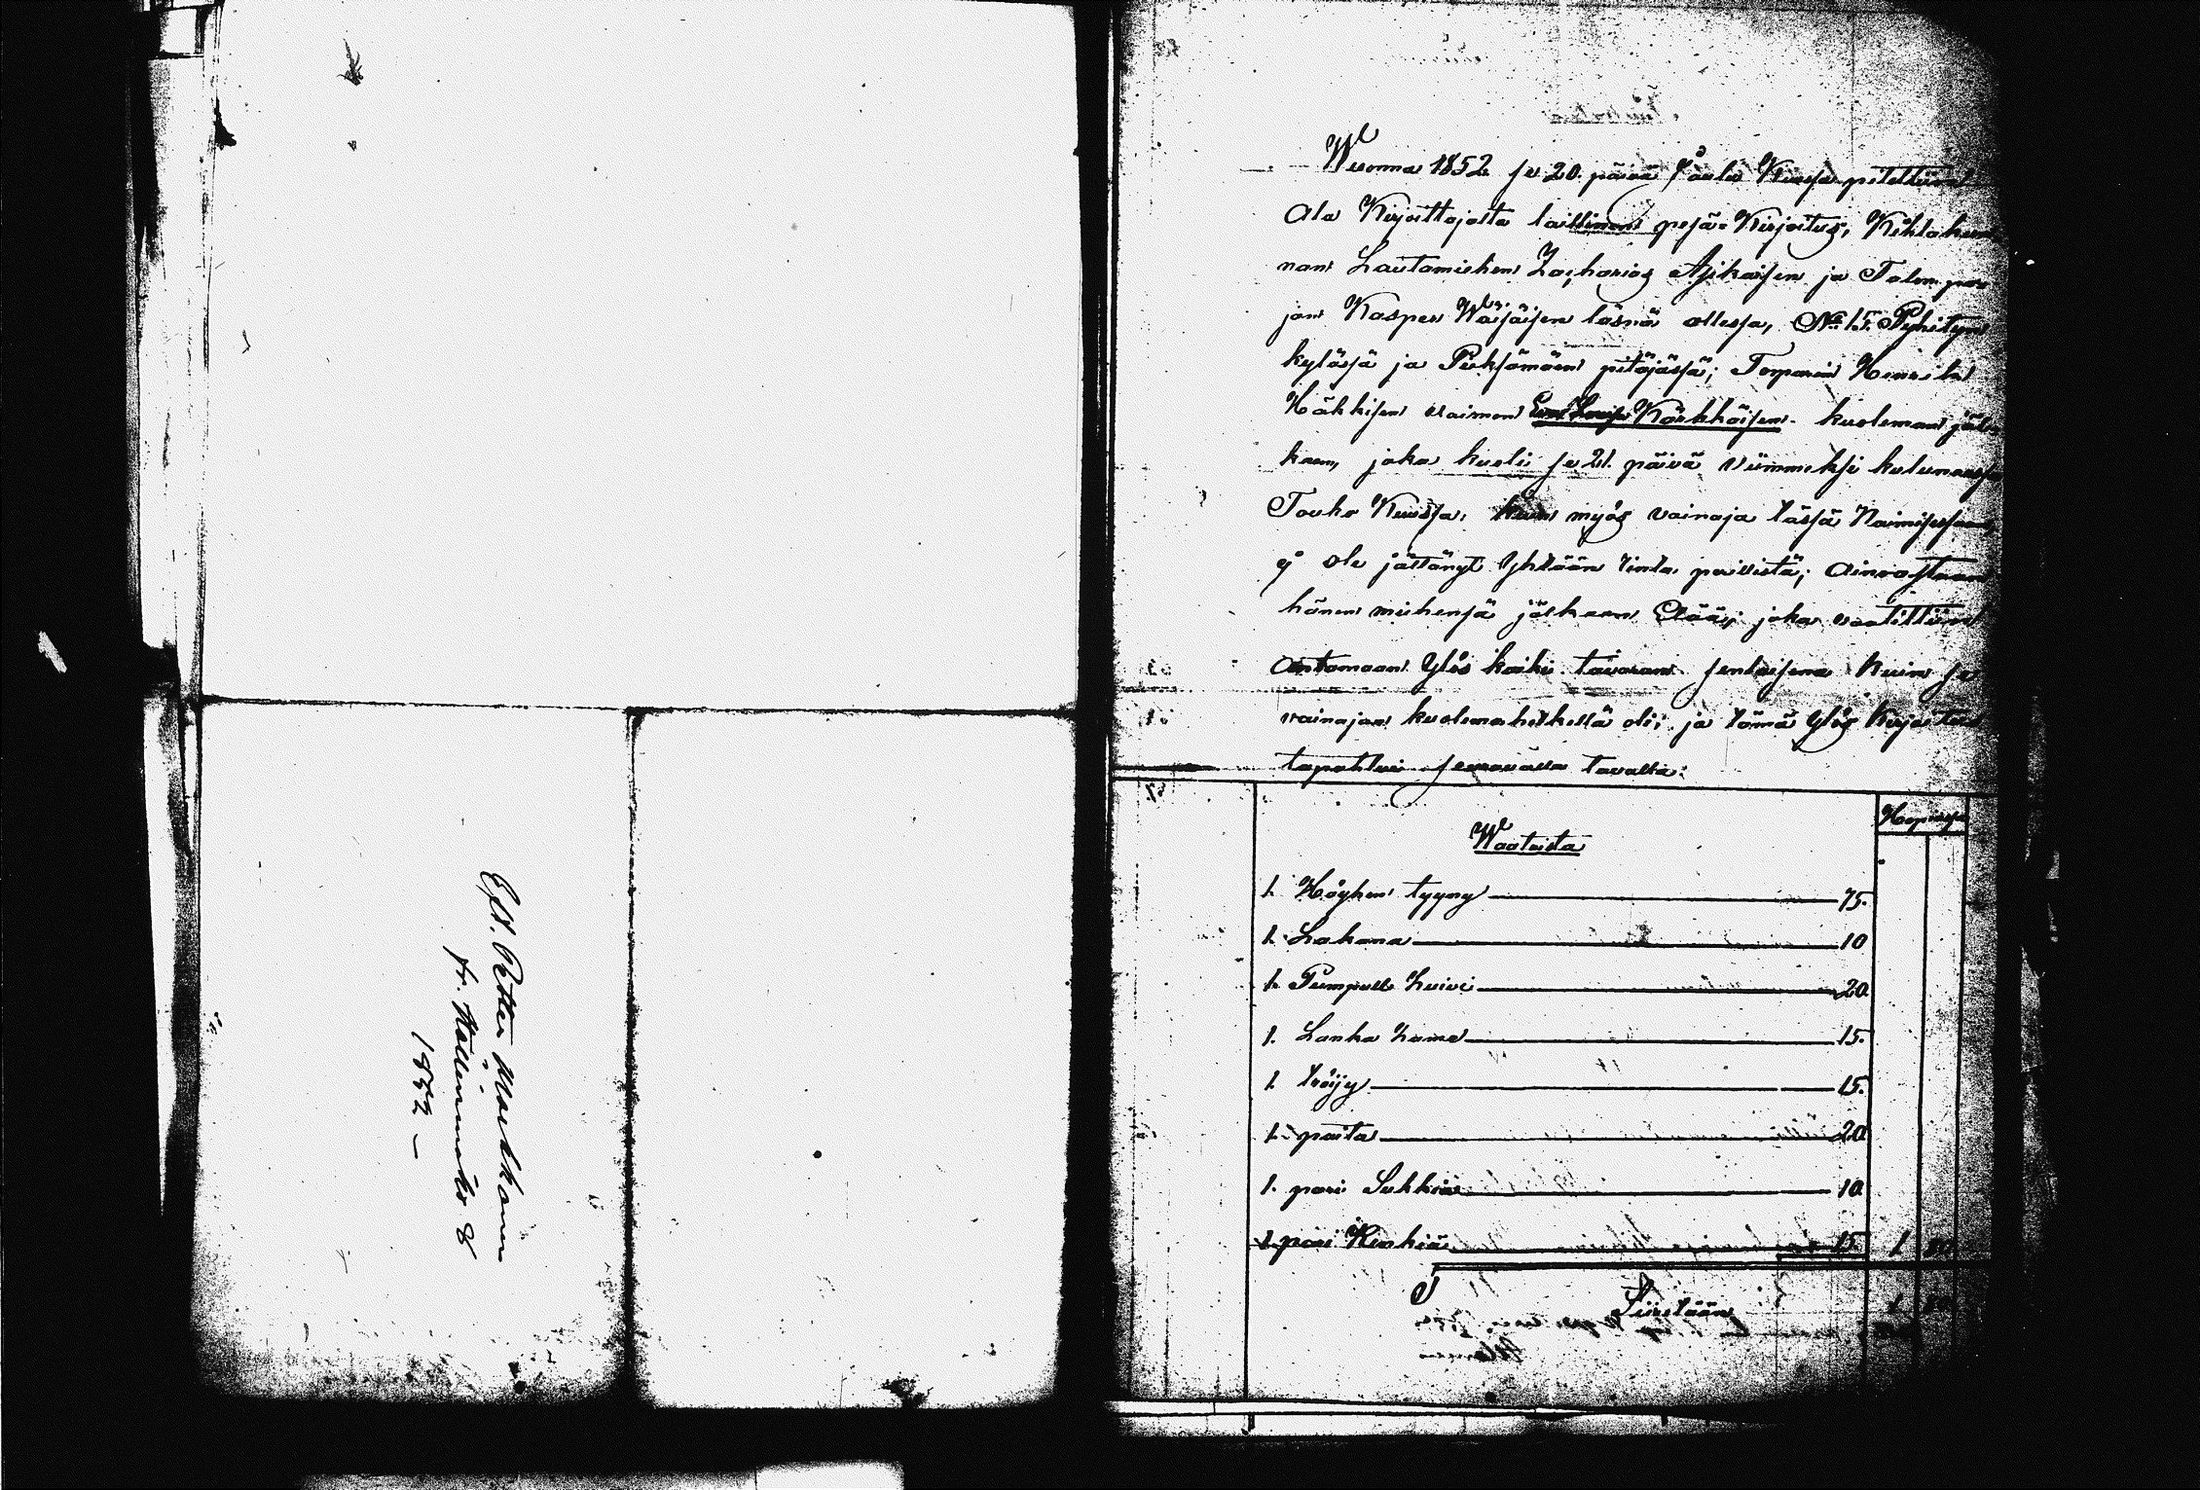 Eft. Petter Markkanen
fr. Hällinmäki 8
1852 –
Wuonna 1852 se 20. päivä Joulu Kuussa pitettiin
Ala Kirjoittajalta laillinen pesä-Kirjoitus, Kihlakun
nan Lautamiehen Zacharias Asikaisen ja Talon poi
jan Kasper Wäisäisen läsnä ollessa, No 15 Pyhityn
kylässä ja Pieksämäen pitäjässä; Torparin Henrik
Häkkisen vaimon Kärkkäisen kuoleman jäl
keen, joka kuoli se 21. päivä viimmeksi kuluneessa
Touko Kuussa, kuin myös vainaja tässä Naimisessaan,
ej ole jättänyt Yhtään rinta perillistä; Ainoastaan
hänen miehensä jälkeen Elää; joka vaatittiin
Antamaan Ylös kaiki tavaran senlaisena kuin se
vainajan kuolema hetkellä oli; ja tämä Ylös Kirjoitus
tapahtui seuraavalla tavalla:
Hopiassa
Waateita
1. Höyhen tyyny 75.
1. Lakana 10
1. Pumpuli huivi 20
1. Lanka hame 15.
1. tröijy 15.
1. paita 20
1. pari Sukkia 10
1 pari Kenkiä 15. 1 80
Siiretään 1 80